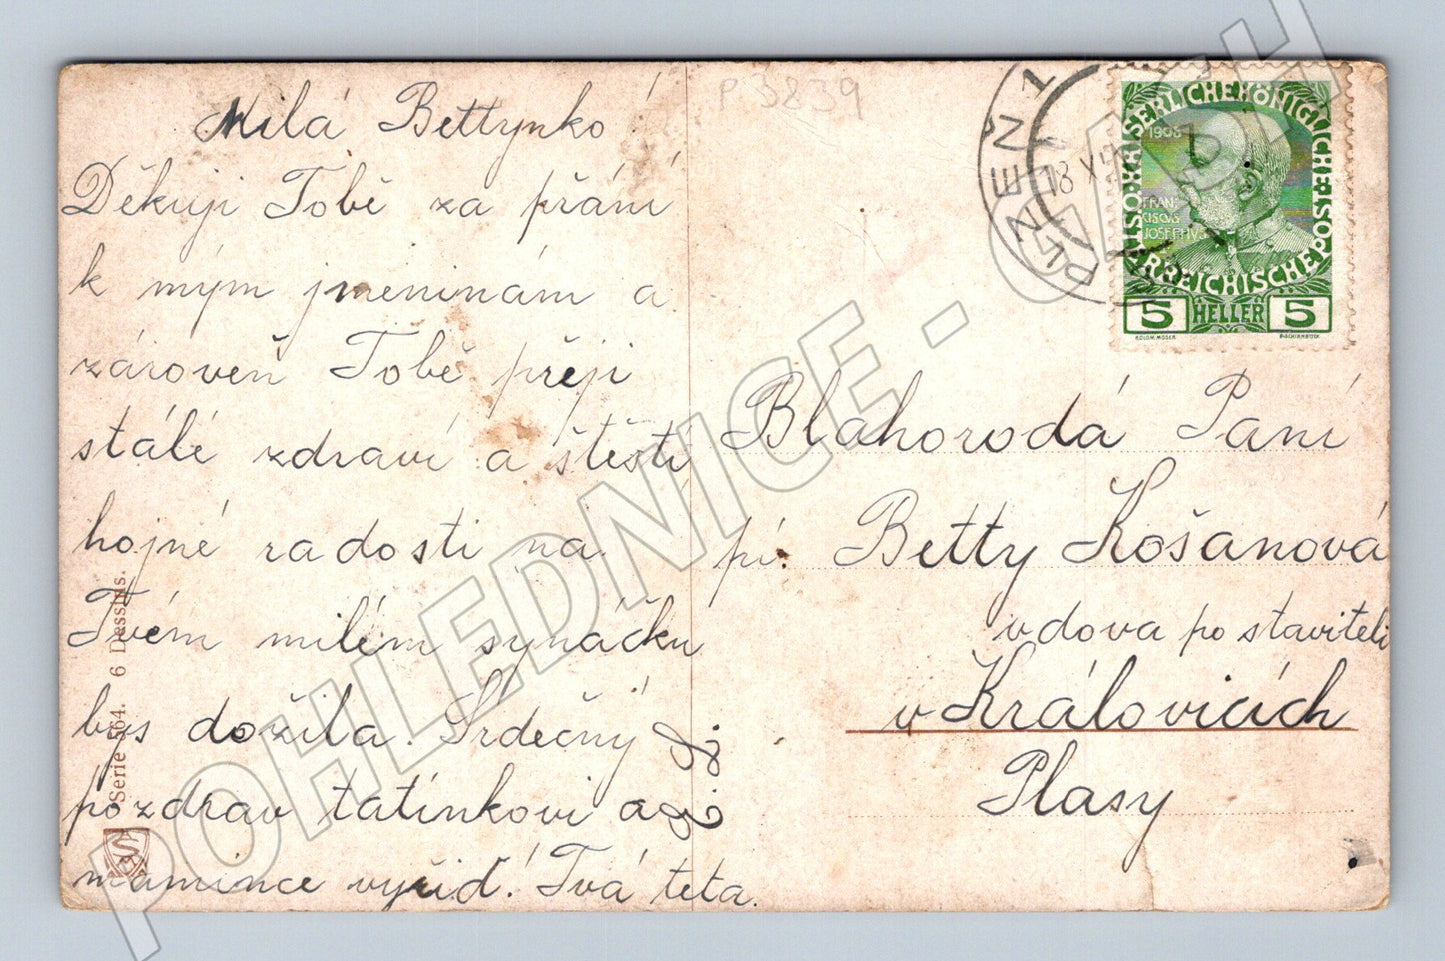 Milá Bettynko!
Děkuji Tobě za přání
k mým jmeninám a
zároveň Tobě přeji
stálé zdraví a štěstí
hojné radosti na
Tvém milém synáčku
bys dožila. Srdečný
pozdrav tatínkovi a
mamince vyřiď. Tvá teta.
P 3839
PLZEŇ 1
18 X
KAISERLICHEKÖNIGLICHE
ÖSTERREICHISCHE POST
1908
FRAN
CISCVS
JOSEPHVS
5 HELLER 5
KOLOM. MOSER
Blahorodá Paní
pí. Betty Košanová
vdova po staviteli
v Královicích
Plasy
Serie 564. 6 Dessins.
POHLEDNICE - GALASH